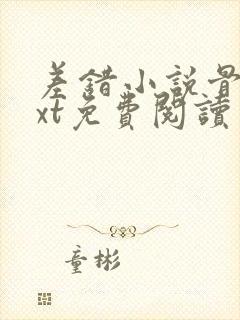 差錯小説最
xt免費閱讀
童彬